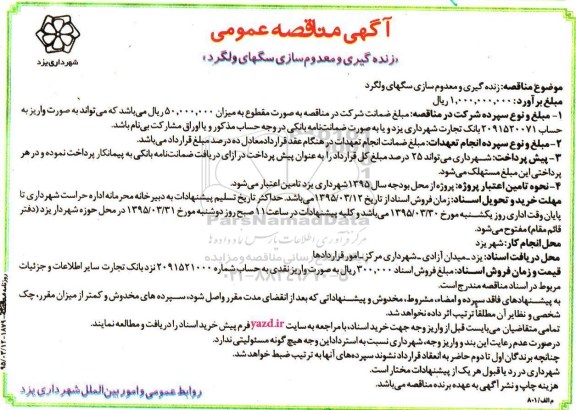 آگهی مناقصه عمومی
«زنده گیری و معدوم سازی سگهای ولگرد»
شهرداری یزد
موضوع مناقصه: زنده گیری و معدوم سازی سگهای ولگرد
مبلغ برآورد: ۱,۰۰۰,۰۰۰,۰۰۰ ریال
۱- مبلغ و نوع سپرده شرکت در مناقصه: مبلغ ضمانت شرکت در مناقصه به صورت مقطوع به میزان ۵۰,۰۰۰,۰۰۰ ریال می‌باشد که می‌تواند به صورت واریز به
حساب ۲۰۹۱۵۲۰۰۷۱ بانک تجارت شهرداری یزد و یا به صورت ضمانتنامه بانکی در وجه حساب مذکور و یا اوراق مشارکت بی‌نام باشد.
۲- مبلغ و نوع سپرده انجام تعهدات: مبلغ ضمانت انجام تعهدات در هنگام عقد قرارداد معادل ده درصد مبلغ قرارداد می‌باشد.
۳- پیش پرداخت: شهرداری می‌تواند ۲۵ درصد مبلغ کل قرارداد را به عنوان پیش پرداخت در ازای دریافت ضمانت‌نامه بانکی به پیمانکار پرداخت نموده و در هر
پرداختی این مبلغ مستهلک می‌شود.
۴- نحوه تامین اعتبار پروژه: پروژه از محل بودجه سال ۱۳۹۵ شهرداری یزد تامین اعتبار می‌شود.
مهلت خرید و تحویل اسناد: زمان فروش اسناد از تاریخ ۱۳۹۵/۰۳/۱۲ می‌باشد. حداکثر تاریخ تسلیم پیشنهادات به دبیرخانه محرمانه اداره حراست شهرداری تا
پایان وقت اداری روز یکشنبه مورخ ۱۳۹۵/۰۳/۳۰ می‌باشد و کلیه پیشنهادات در ساعت ۱۱ صبح روز دوشنبه مورخ ۱۳۹۵/۰۳/۳۱ در محل حوزه شهردار یزد (دفتر
قائم مقام) مفتوح می‌شود.
محل انجام کار: شهر یزد
محل دریافت اسناد: یزد ـ میدان آزادی ـ شهرداری مرکز ـ امور قراردادها
قیمت و زمان فروش اسناد: مبلغ فروش اسناد ۳۰۰,۰۰۰ ریال به صورت واریز نقدی به حساب شماره ۲۰۹۱۵۲۱۰۰۰ نزد بانک تجارت سایر اطلاعات و جزئیات
مربوط در اسناد مناقصه مندرج است.
به پیشنهادهای فاقد سپرده و امضاء، مشروط، مخدوش و پیشنهاداتی که بعد از انقضای مدت مقرر واصل شود، سپرده های مخدوش و کمتر از میزان مقرر، چک
شخصی و نظایر آن مطلقاً ترتیب اثر داده نخواهد شد.
تمامی متقاضیان می‌بایست قبل از واریز وجه جهت خرید اسناد، با مراجعه به سایت yazd.ir فرم پیش خرید اسناد را دریافت و مطالعه نمایند.
در صورت عدم رعایت این بند و واریز وجه، شهرداری نسبت به استرداد این وجه هیچ گونه مسئولیتی ندارد.
چنانچه برندگان اول تا دوم حاضر به انعقاد قرارداد نشوند سپرده‌های آنها به ترتیب ضبط خواهد شد.
شهرداری در رد یا قبول هر یک از پیشنهادات مختار است.
هزینه چاپ و نشر آگهی به عهده برنده مناقصه می‌باشد.
روابط عمومی و امور بین الملل شهرداری یزد
م الف/۸۰۱
ParsNamadData